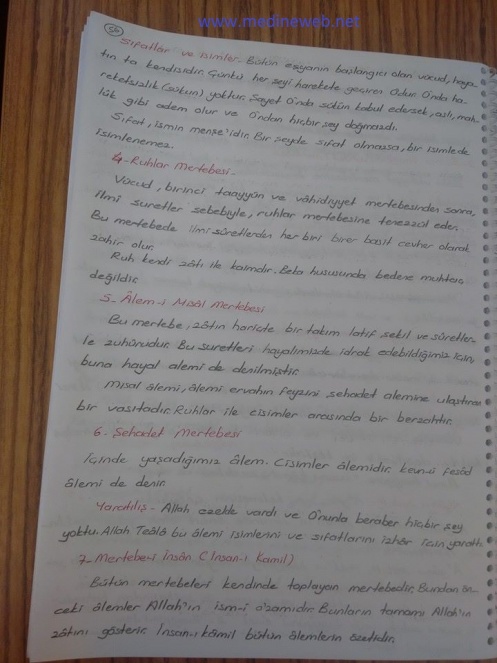 www.medineweb.net
56
Sıfatlar ve isimler. Bütün eşyanın başlangıcı olan vücud, haya-
tın ta kendisidir. Çünkü her şeyi harekete geçiren O'dur. O'nda ha-
reketsizlik (sükun) yoktur. Şayet O'nda sükün kabul edersek, aslı, mah-
lûk gibi adem olur ve O'ndan hiçbir şey doğmazdı.
Sıfat, ismin menşe'idir. Bir şeyde sıfat olmazsa, bir isimle de
isimlenemez.
4- Ruhlar Mertebesi-
Vücud, birinci taayyün ve vâhidiyyet mertebesinden sonra,
ilmi suretler sebebiyle, ruhlar mertebesine tenezzül eder.
Bu mertebede ilmi sûretlerden her biri birer basit cevher olarak
zahir olur.
Ruh kendi zâtı ile kaimdir. Beka hususunda bedene muhtaç
değildir.
5- Âlem-i Misâl Mertebesi
Bu mertebe, zâtın hariçte bir takım latif şekil ve sûretler-
le zuhûrudur. Bu suretleri hayalimizde idrak edebildiğimiz için,
buna hayal alemi de denilmiştir.
Misal âlemi, âlemi ervahın feyzini, şehadet alemine ulaştıran
bir vasıtadır. Ruhlar ile cisimler arasında bir berzahtır.
6- Şehadet Mertebesi
İçinde yaşadığımız âlem. Cisimler âlemidir. kevn-ü fesâd
âlemi de denir.
Yaratılış- Allah ezelde vardı ve O'nunla beraber hiçbir şey
yoktu. Allah Teâlâ bu âlemi isimlerini ve sıfatlarını izhâr için yarattı
7- Mertebe-i İnsân (İnsan-ı Kamil)
Bütün mertebeleri kendinde toplayan mertebedir. Bundan ön-
ceki âlemler Allah'ın ism-i a'zamıdır. Bunların tamamı Allah'ın
zâtını gösterir. İnsan-ı kâmil bütün âlemlerin özetidir.